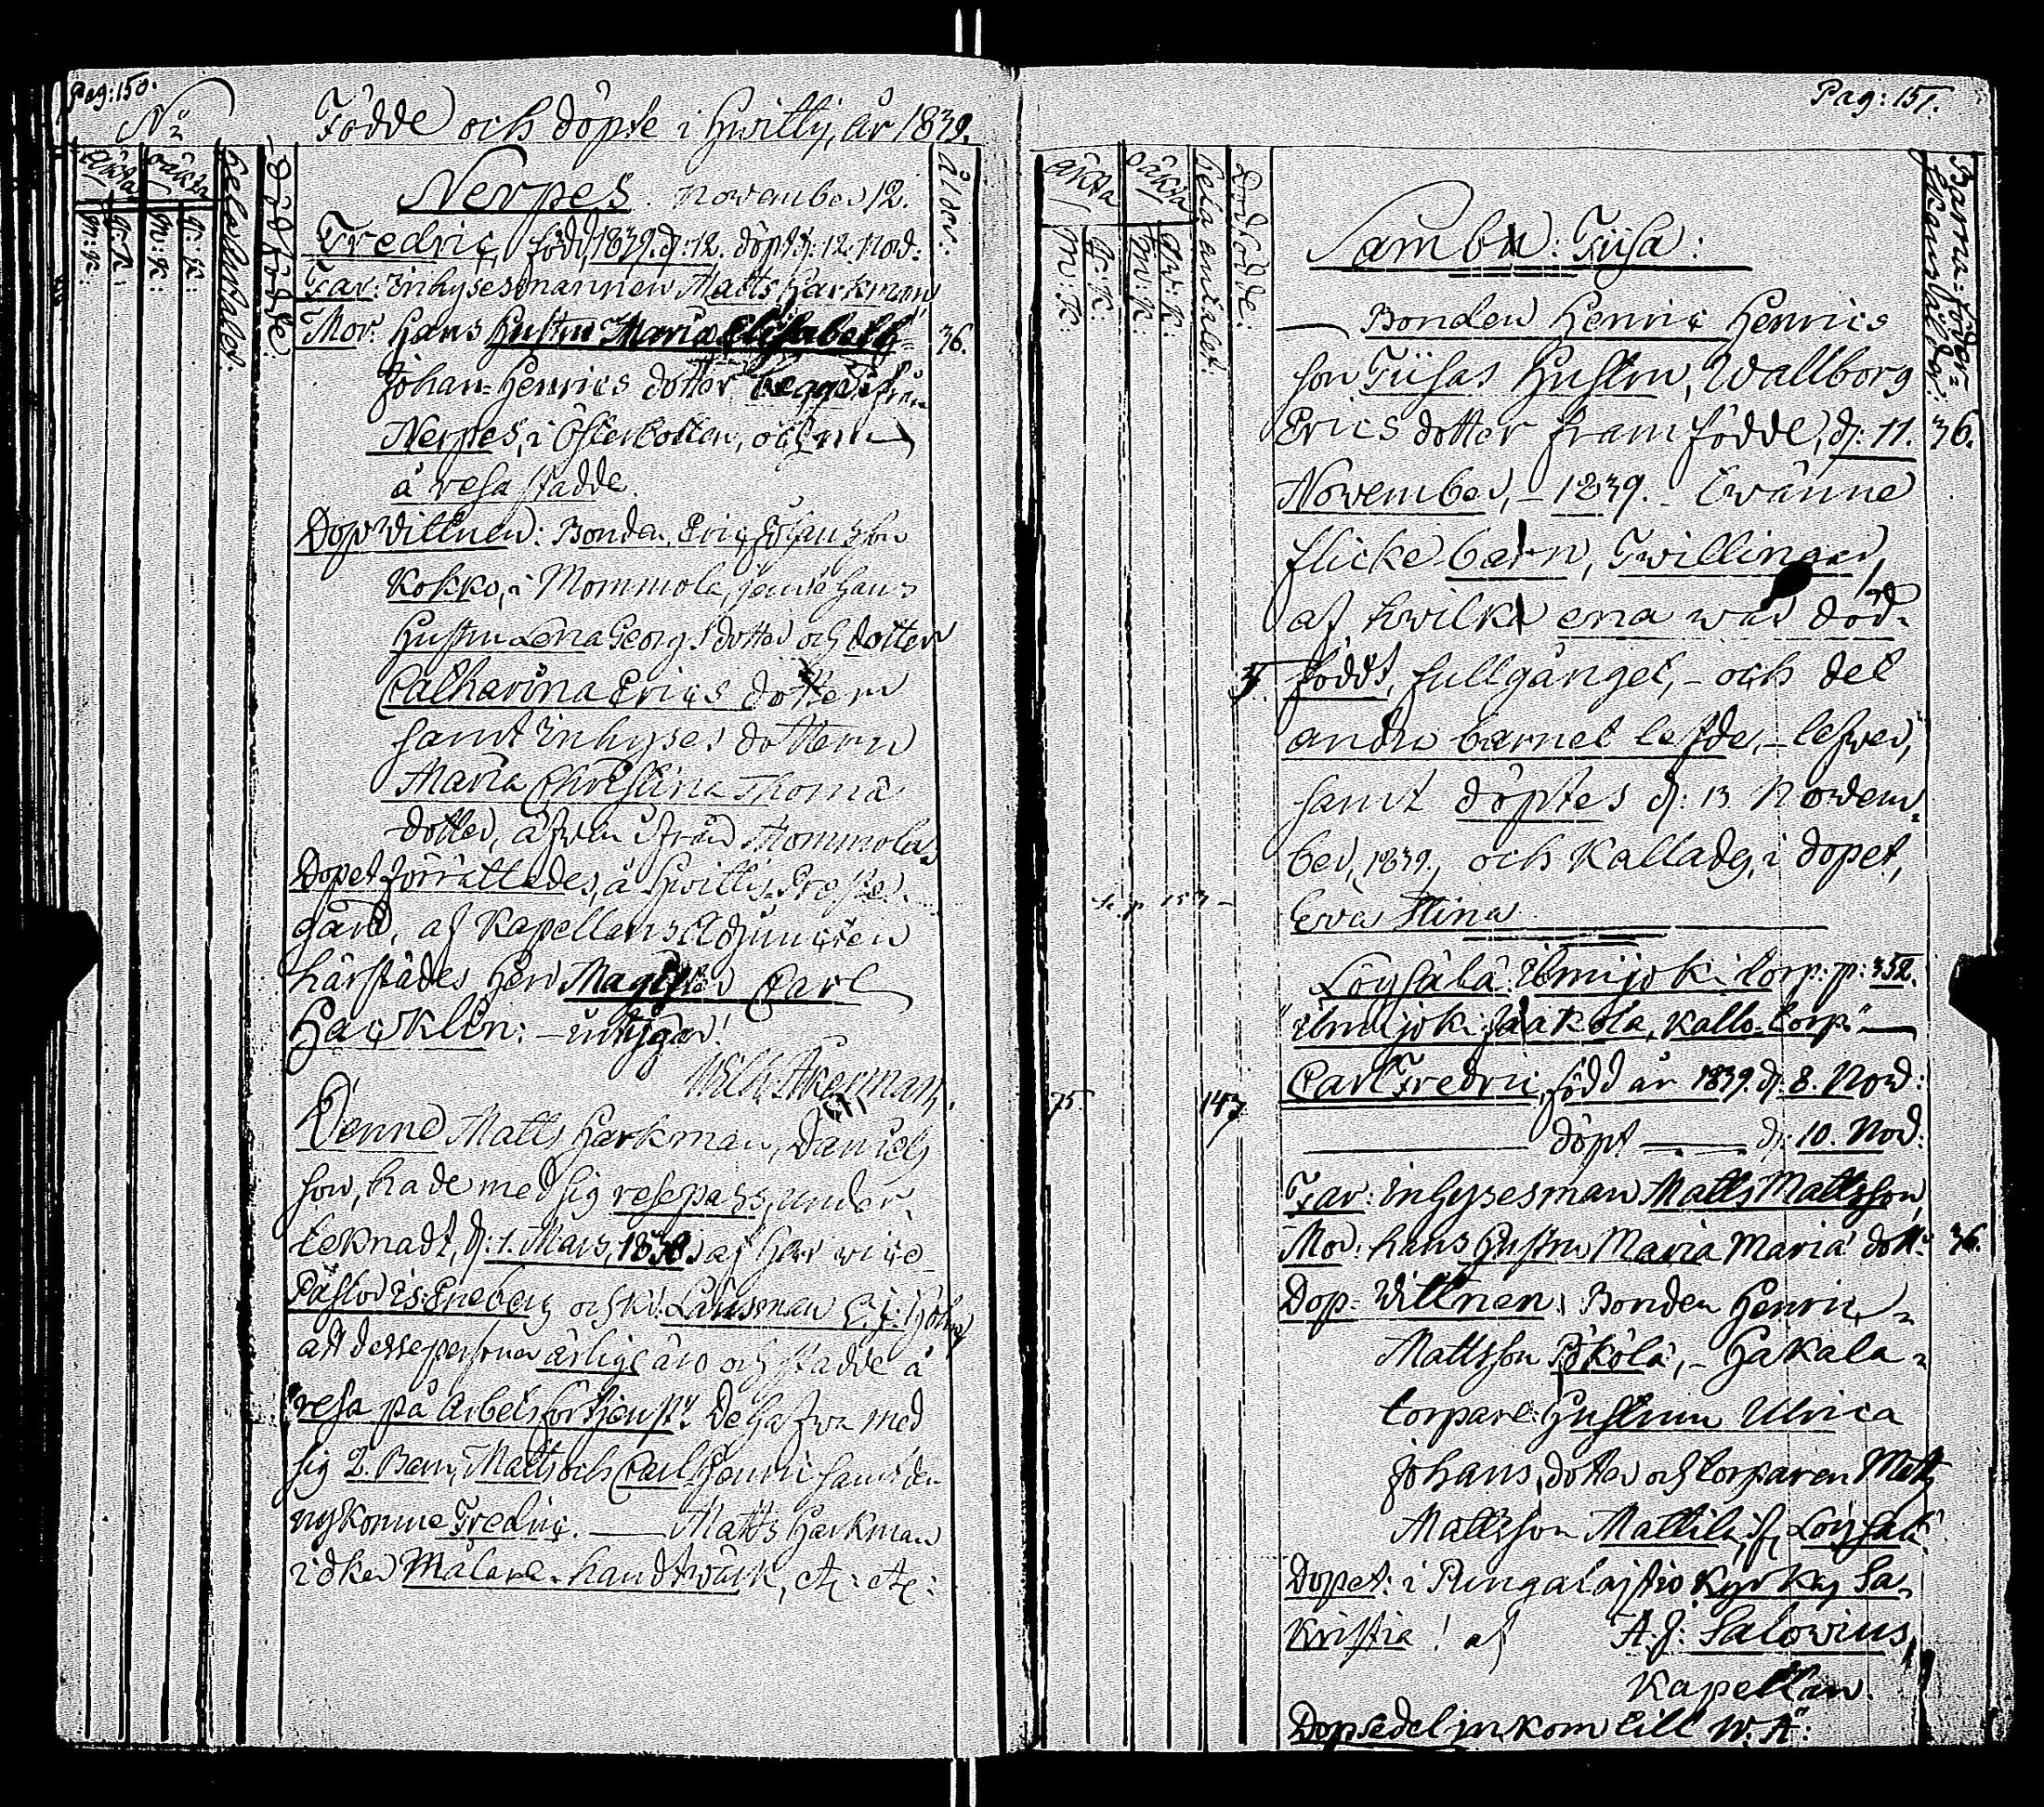 Pag: 150.
No
Födde och döpte i Hwittis, år 1839.
äkta
oäkta
m: k:
q: k:
m: k:
q: k:
Hela antalet.
Dödfödde.
ålder:
Nerpes. November 12.
Fredric, född, 1839. d: 12. döpt d: 12. Nov:
Far: Inhysesmannen Matts Harkman,
Mor: Hans Hustru Maria Elisabeth 36.
Johan-Henrics dotter begge ifrån
Nerpes, i Österbotten, och nu
å resa stadde.
Dop Wittnen: Bonden, Eric Johansson
Kokko, i Mommola, jemte hans
Hustru Lena Georgs dotter och dottern
Catharina Erics dotter
samt Inhyses dottern
Maria Christina Thomæ
dotter, äfwen ifrån Mommola.
Dopet förrättades, å Hwittis Preste-
gård, af Kapellans Adjuncten
härstädes Herr Magister Carl
Hacklin: - intygar!
Wilh. Åkerman.
Denne Matts Harkman, Daniels
son, hade med sig resepass, under-
teknadt, d: 1. Mars, 1838. af Herr vice
Pastor Is: Eneberg och Länsman C. J: Holm,
att desse personer ärlige äro och stadde å
"resa på Arbetsförtjenst". De hafwa med
sig 2. Barn, Matts och Carl Henric samt den
nykomne Fredric. — Matts Harkman
idkar Målare-handtwärk, etc: etc:
Pag: 151.
äkta
oäkta
m: k:
q: k:
m: k:
q: k:
Hela antalet.
Dödfödde.
Barna-föder-
skans ålder.
Sambu: Tiisa:
Bonden Henric Henrics
son Tiisas Hustru, Wallborg
Erics dotter framfödde, d: 11. 36.
November, - 1839. - twänne
flicke barn, Twillingar,
af hwilka ena war död-
1. född, fullgånget, - och det
andra barnet lefde, - lefwer,
samt döptes d: 13 Novem-
ber, 1839, och kallades, i dopet,
Eva Stina
Löysälä. Ilmijoki torp: p: 352.
"Ilmijoki Jaakola, Kallo-torp"
75. 147. Carl Fredric, född år 1839. d: 8. Nov:
döpt d: 10. Nov:
Far: Inhysesman Matts Mattsson,
Mor: hans Hustru Maria Mariæ dott: 36.
Dop-Wittnen: Bonden Henric
Mattsson Pökölä, - Hakala-
torpare: Hustrun Ulrica
Johans dotter och torparen Matts
Mattsson Mattila, if: Löysälä.
Dopet: i Pungalajtio Kyrkas Sa-
kristia! af A: J: Salovius,
Kapellan.
Dopsedel inkom till W. Å: